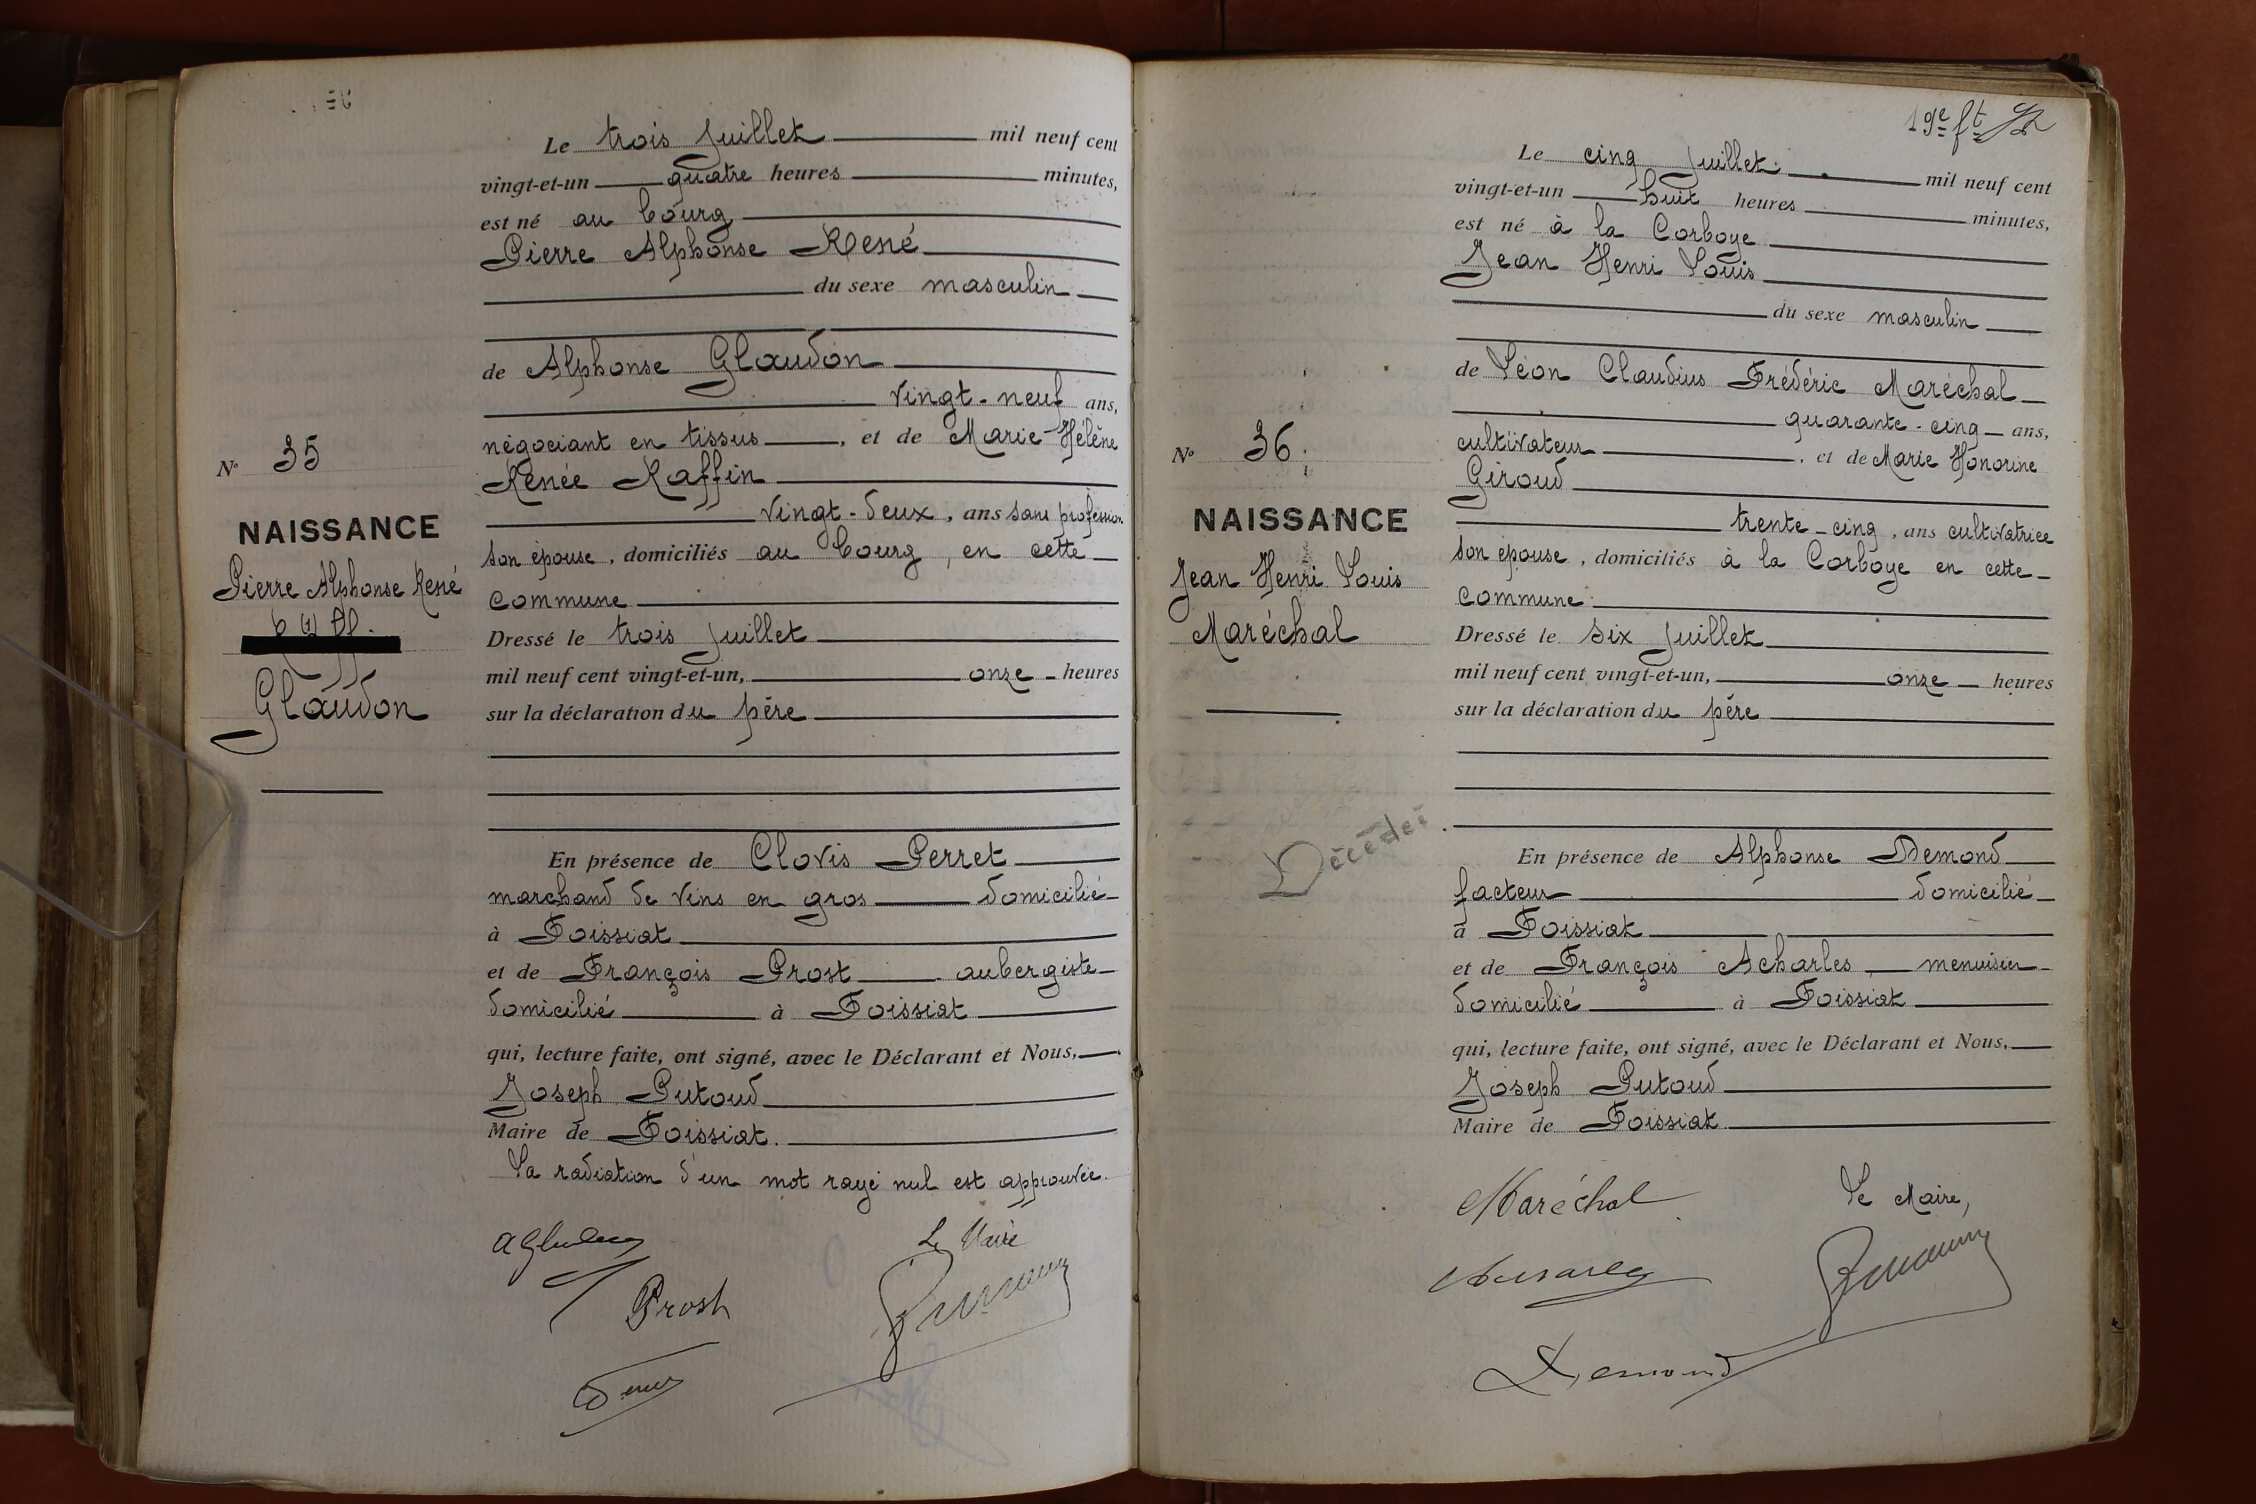 Le trois Juillet mil neuf cent
vingt-et-un quatre heures minutes,
est né au bourg
Pierre Alphonse René
du sexe masculin
de Alphonse Glaudon
vingt-neuf ans,
négociant en tissus, et de Marie Hélène
Renée Raffin
vingt-deux, ans sans profession
son épouse, domiciliés au bourg, en cette
commune
Dressé le trois Juillet
mil neuf cent vingt-et-un, onze heures
sur la déclaration du père
En présence de Clovis Perret
marchand de vins en gros domicilié
à Foissiat
et de François Prost aubergiste
domicilié à Foissiat
qui, lecture faite, ont signé, avec le Déclarant et Nous,
Joseph Putoud
Maire de Foissiat.
La radiation d'un mot rayé nul est approuvée.
Le Maire
Prost
N° 35
NAISSANCE
Pierre Alphonse René
Glaudon
19e ft
Le cinq Juillet mil neuf cent
vingt-et-un huit heures minutes,
est né à la Corboye
Jean Henri Louis
du sexe masculin
de Léon Claudius Frédéric Maréchal
quarante-cinq ans,
cultivateur, et de Marie Honorine
Giroud
trente-cinq, ans cultivatrice
son épouse, domiciliés à la Corboye en cette
commune
Dressé le six Juillet
mil neuf cent vingt-et-un, onze heures
sur la déclaration du père
En présence de Alphonse Demond
facteur domicilié
à Foissiat
et de François Acharles, menuisier
domicilié à Foissiat
qui, lecture faite, ont signé, avec le Déclarant et Nous,
Joseph Putoud
Maire de Foissiat
Maréchal Le Maire,
Demond
N° 36
NAISSANCE
Jean Henri Louis
Maréchal